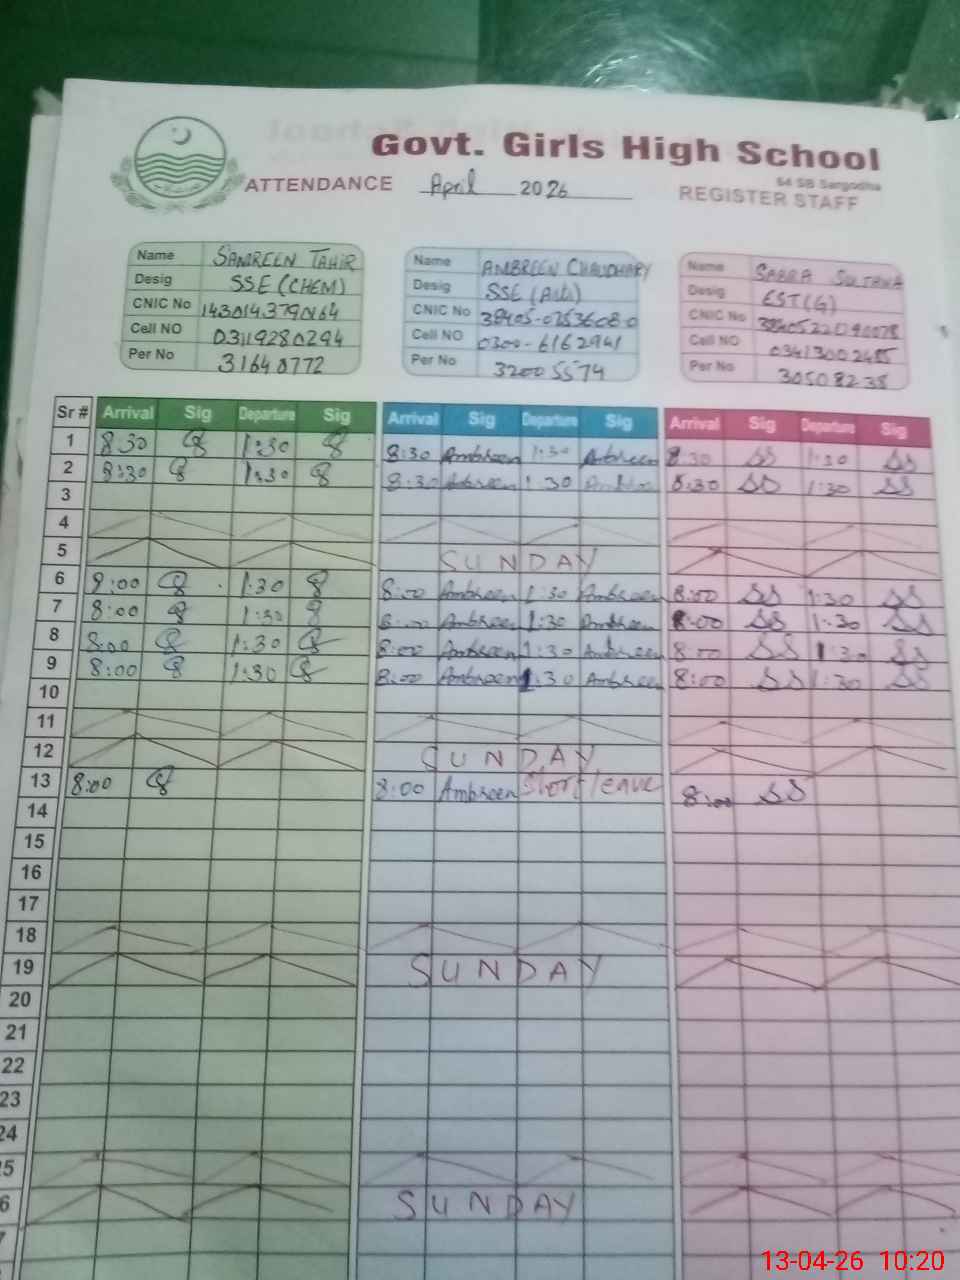 Govt. Girls High School
64 SB Sargodha
ATTENDANCE April 2026 REGISTER STAFF
Name SAMREEN TAHIR
Desig SSE (CHEM)
CNIC No
Cell NO 03119280294
Per No 31640772
Name AMBREEN CHAUDHARY
Desig SSE (Arts)
CNIC No
Cell NO 0300-6162941
Per No 32005574
Name SABRA SULTANA
Desig EST(G)
CNIC No
Cell NO 03413002485
Per No 30508238
Sr # Arrival Sig Departure Sig Arrival Sig Departure Sig Arrival Sig Departure Sig
1 8:30 1:30 8:30 Ambreen 1:30 Ambreen 8:30 SS 1:30 SS
2 8:30 1:30 8:30 Ambreen 1:30 Ambreen 8:30 SS 1:30 SS
3
4
5 SUNDAY
6 8:00 1:30 8:00 Ambreen 1:30 Ambreen 8:00 SS 1:30 SS
7 8:00 1:30 8:00 Ambreen 1:30 Ambreen 8:00 SS 1:30 SS
8 8:00 1:30 8:00 Ambreen 1:30 Ambreen 8:00 SS 1:30 SS
9 8:00 1:30 8:00 Ambreen 1:30 Ambreen 8:00 SS 1:30 SS
10
11
12 SUNDAY
13 8:00 8:00 Ambreen Short leave 8:00 SS
14
15
16
17
18
19 SUNDAY
20
21
22
23
24
5
6 SUNDAY
7
13-04-26 10:20